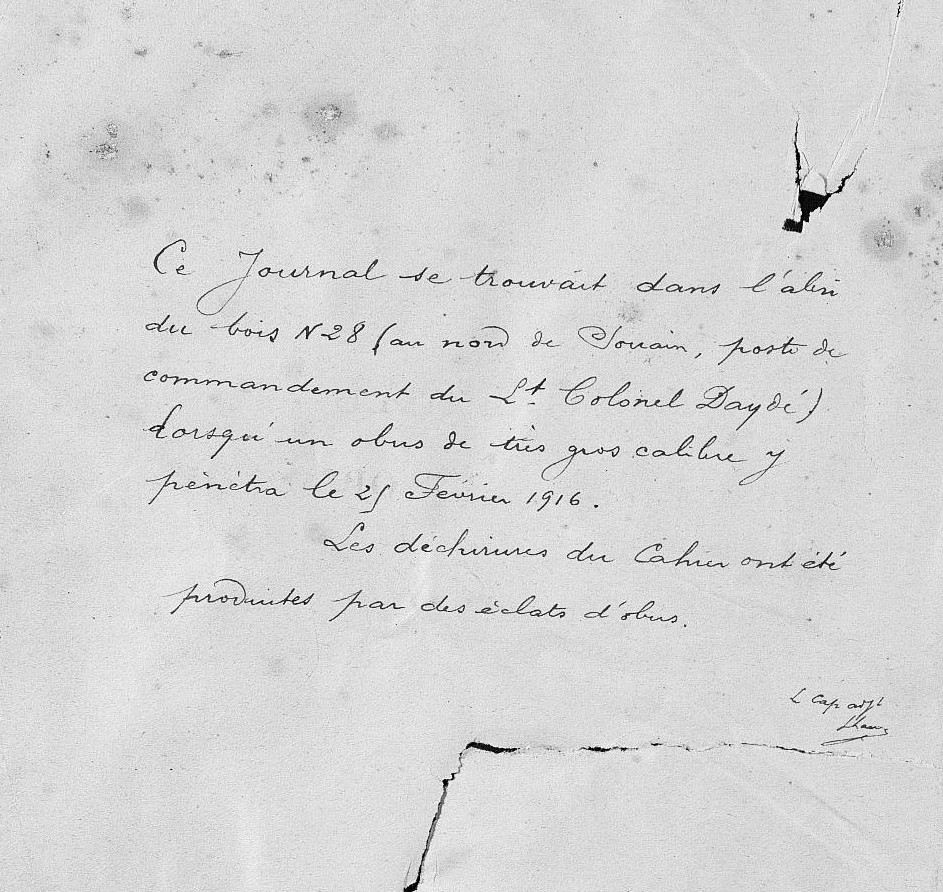 Ce Journal se trouvait dans l'abri
du bois N 28 (au nord de Souain, poste de
commandement du Lt. Colonel Daydé)
Lorsqu'un obus de très gros calibre y
pénétra le 25 Février 1916.
Les déchirures du Cahier ont été
produites par des éclats d'obus.
L Cap adjt